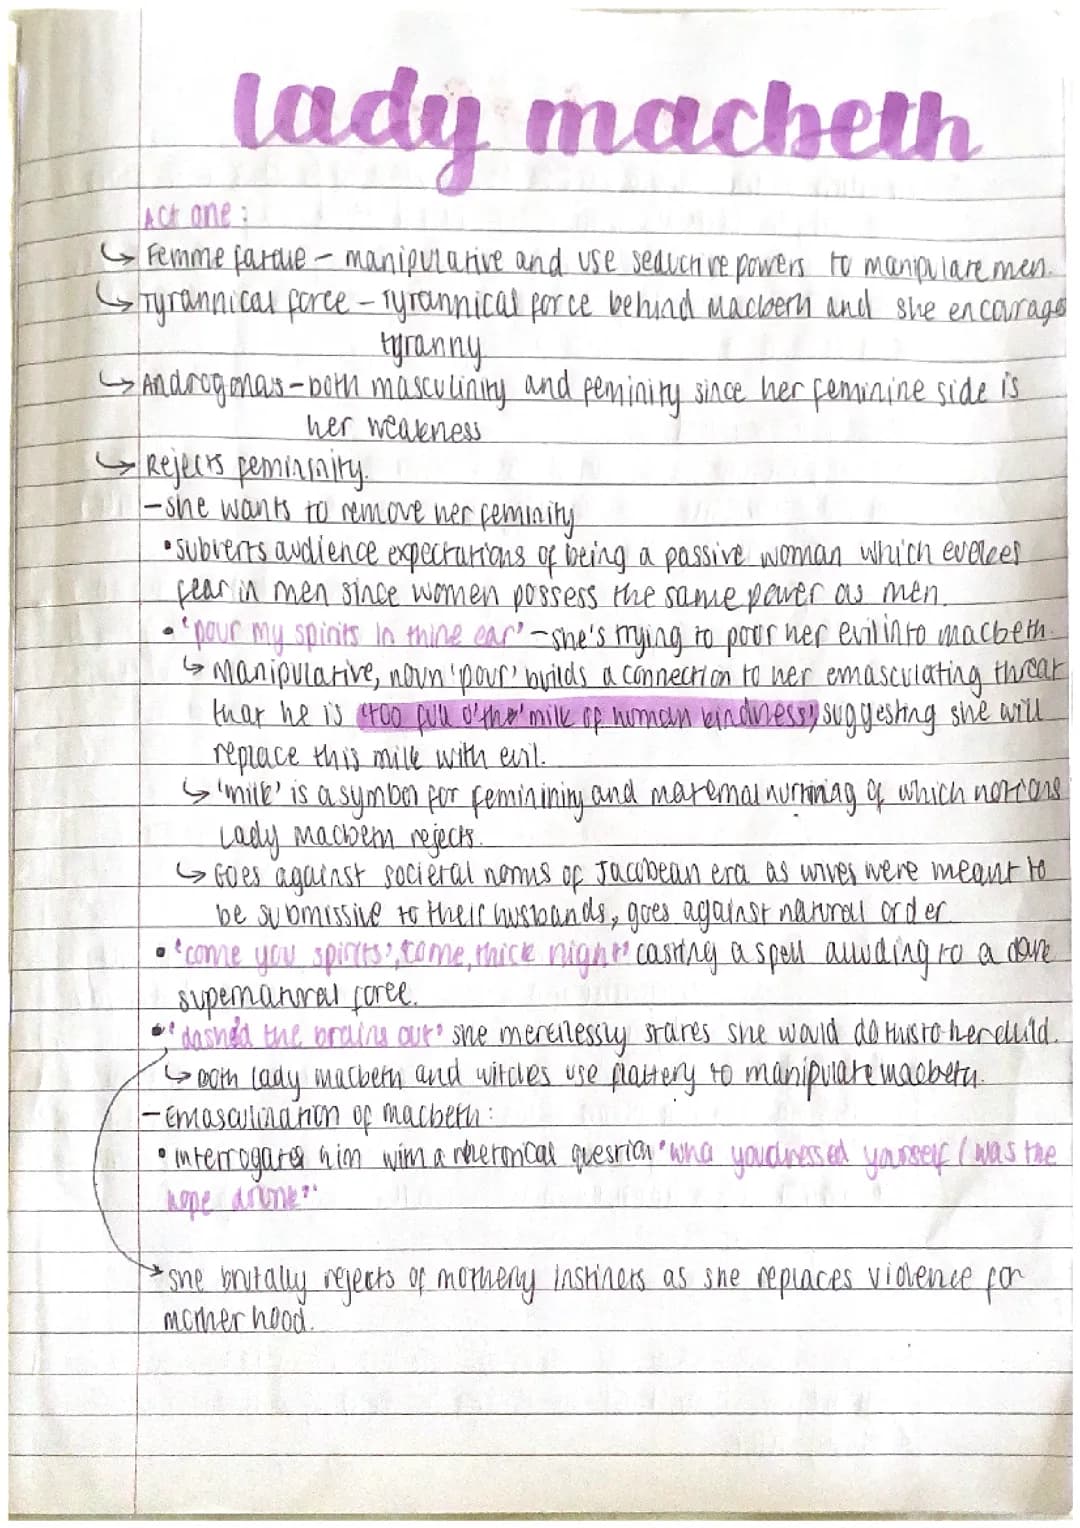 lady macbeth
Act one:
↳ Femme fatale – manipulative and use seductive powers to manipulate men.
↳ Tyrannical force – Tyrannical force behind Macbeth and she encourages
tyranny
↳ Androgonous – both masculinity and feminity since her feminine side is
her weakness
↳ Rejects femininity.
– she wants to remove her feminity
• subverts audience expectations of being a passive woman which evokes
fear in men since women possess the same power as men.
• 'pour my spirits in thine ear' – she's trying to poor her evil into macbeth.
↳ Manipulative, noun 'pour' builds a connection to her emasculating threat
that he is 'too full o'the' milk of human kindness', suggesting she will
replace this milk with evil.
↳ 'milk' is a symbol for femininity and maternal nurturing of which
Lady Macbeth rejects.
↳ Goes against societal norms of Jacobean era as wives were meant to
be submissive to their husbands, goes against natural order
• 'come you spirits', 'come, thick night' casting a spell alluding to a dark
supernatural force.
• 'dashed the brains out' she mercilessly states she would do this to her child.
↳ both lady macbeth and witches use flattery to manipulate macbeth.
– Emasculination of macbeth:
• interrogates him with a rhetorical question 'who you dressed yourself / was the
hope drunk?'
→ she brutally rejects of motherly instincts as she replaces violence for
motherhood.